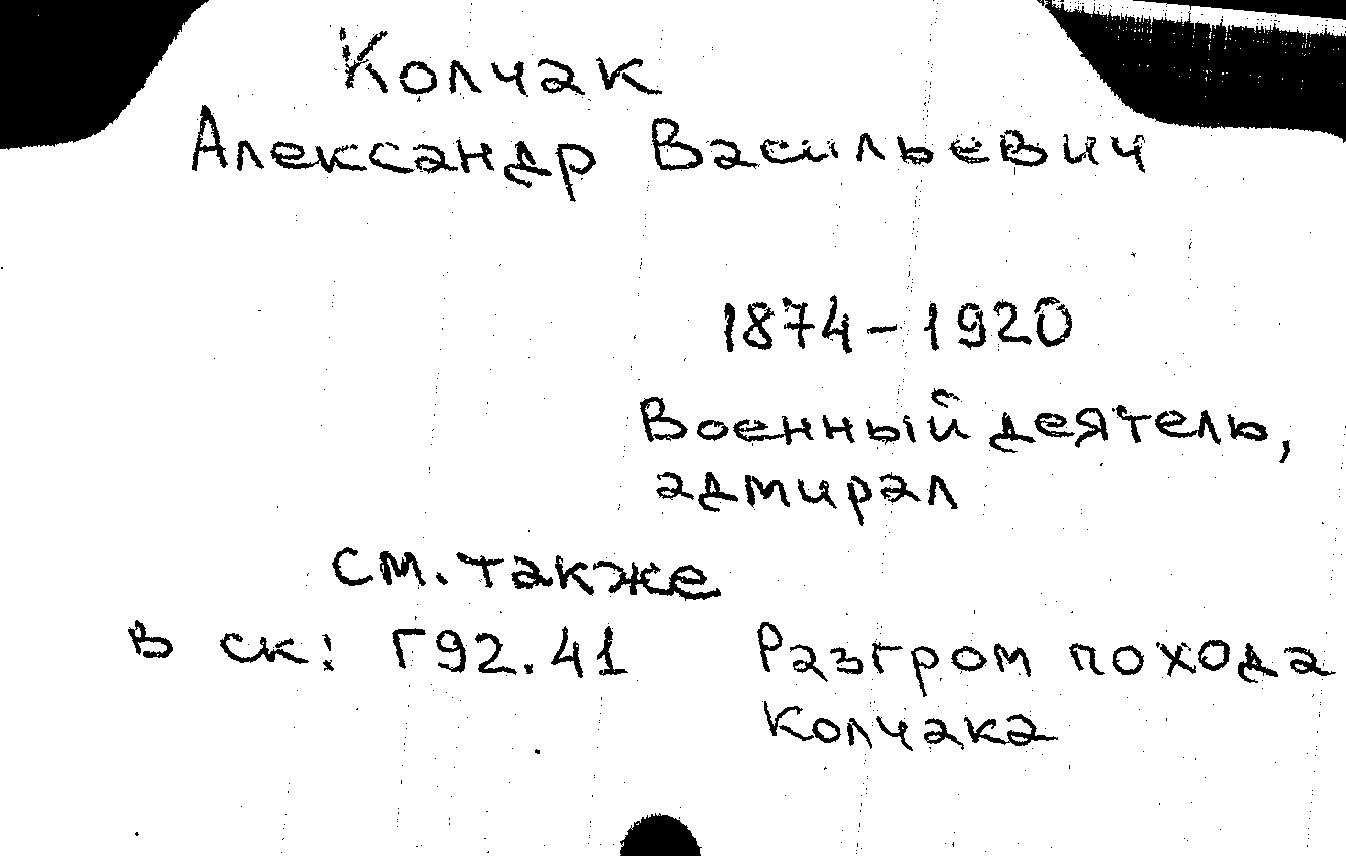 Колчак
Александр Васильевич
1874-1920
Военный деятель,
адмирал
см. также
в ск: Г92.41 Разгром похода
Колчака